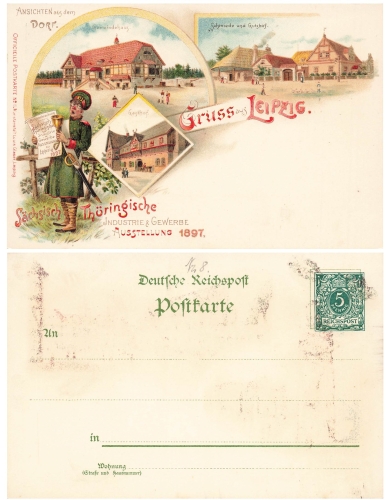 ANSICHTEN aus dem
DORF.
Schmiede und Gutshof.
Gruss aus LEIPZIG.
Sächsisch Thüringische
INDUSTRIE & GEWERBE
AUSSTELLUNG 1897.
Deutsche Reichspost
Postkarte
5
REICHSPOST
An
in
Wohnung
(Straße und Hausnummer)